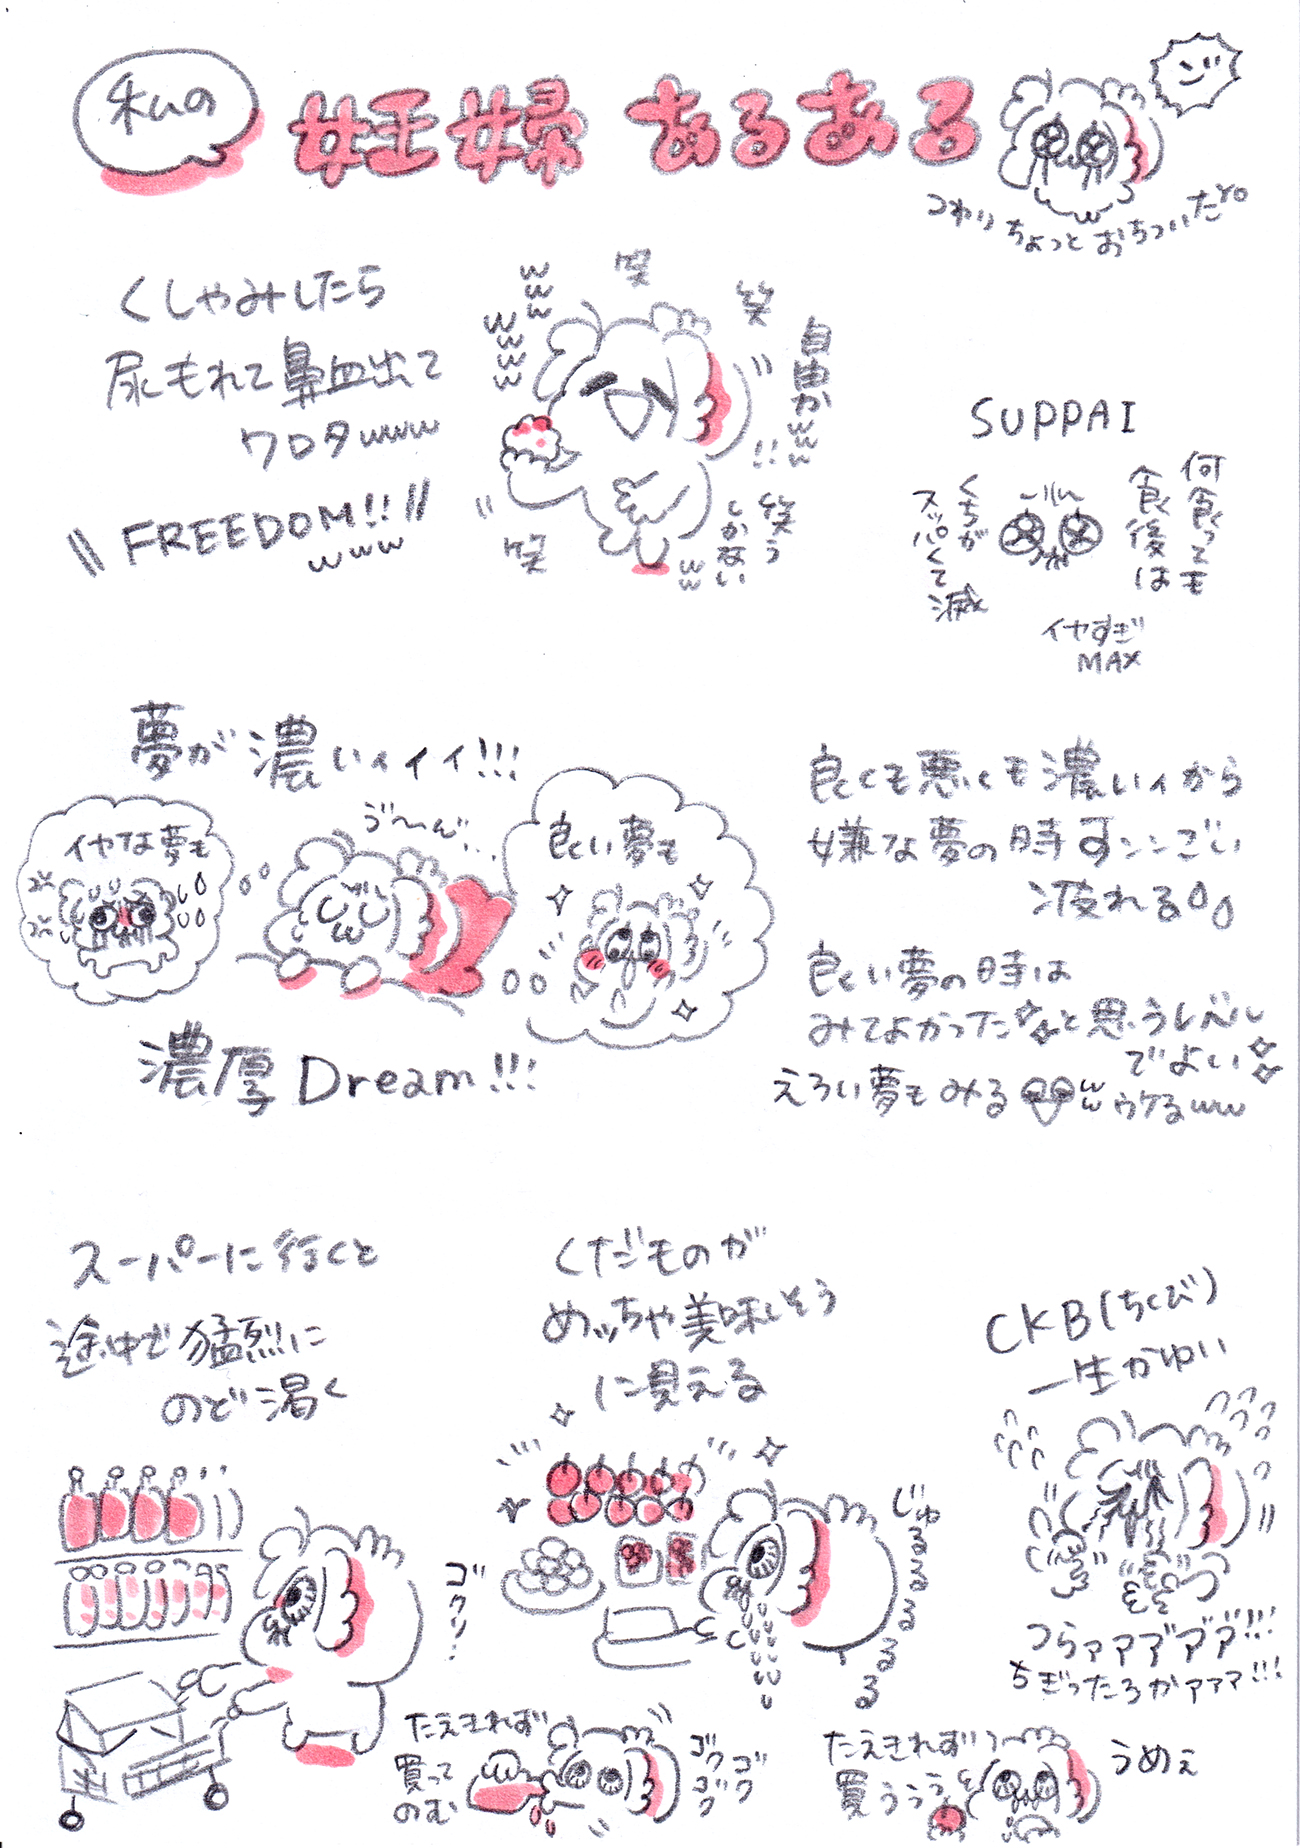 私の
妊婦 あるある
つわりちょっとおちついたYO
くしゃみしたら
尿もれて鼻血出て
ワロタwww
FREEDOM!!
www
www
wwww
笑
笑
自由かwww
!!
笑う
しか ない
ww
笑
SUPPAI
何食っても
食後は
くちが
スッパくて
滅
イヤすぎ
MAX
夢が濃いィィィ!!!
イヤな夢も
う〜ん…
良い夢も
濃厚Dream!!!
良くも悪くも濃いィから
嫌な夢の時すンンごい
疲れる
良い夢の時は
みてよかったと思うレベル
でよい
えろい夢もみる ww ウケるww
スーパーに行くと
途中で猛烈に
のど渇く
ゴクリ!
たえきれず
買って
のむ
ゴク
ゴク
ゴク
くだものが
めっちゃ美味しそう
に見える
じゅるるるるるるる
たえきれず
買うううう
うめぇ
CKB(ちくび)
一生かゆい
つらァァァ゙ァ゙ァ゙!!!
ちぎったろかァァァ!!!